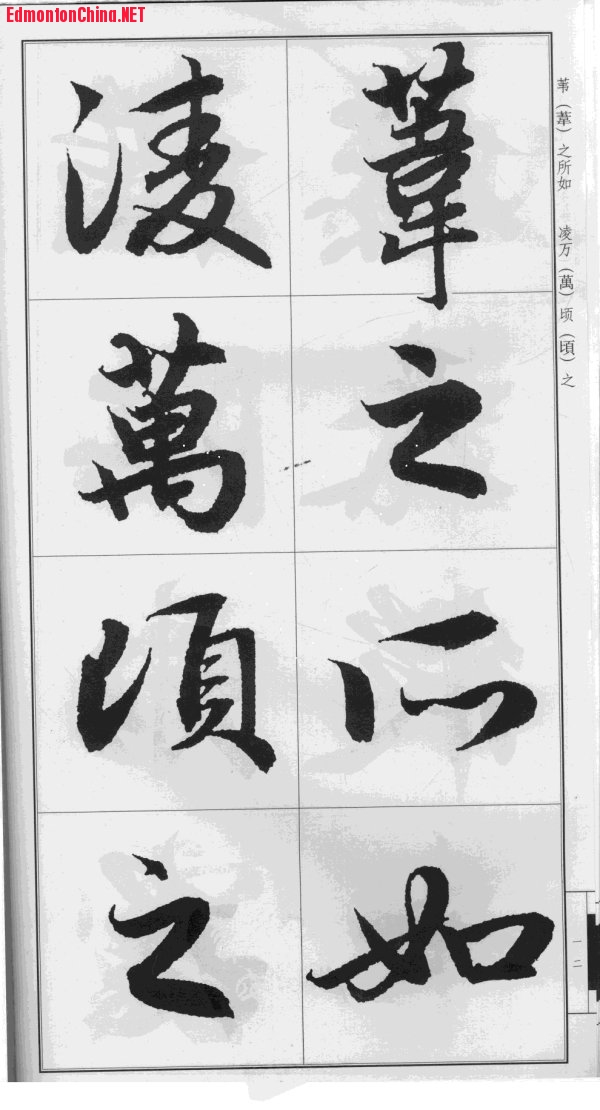 EdmontonChina.NET
苇（葦）之所如 凌万（萬）顷（頃）之
葦之所如
淩萬頃之
一二